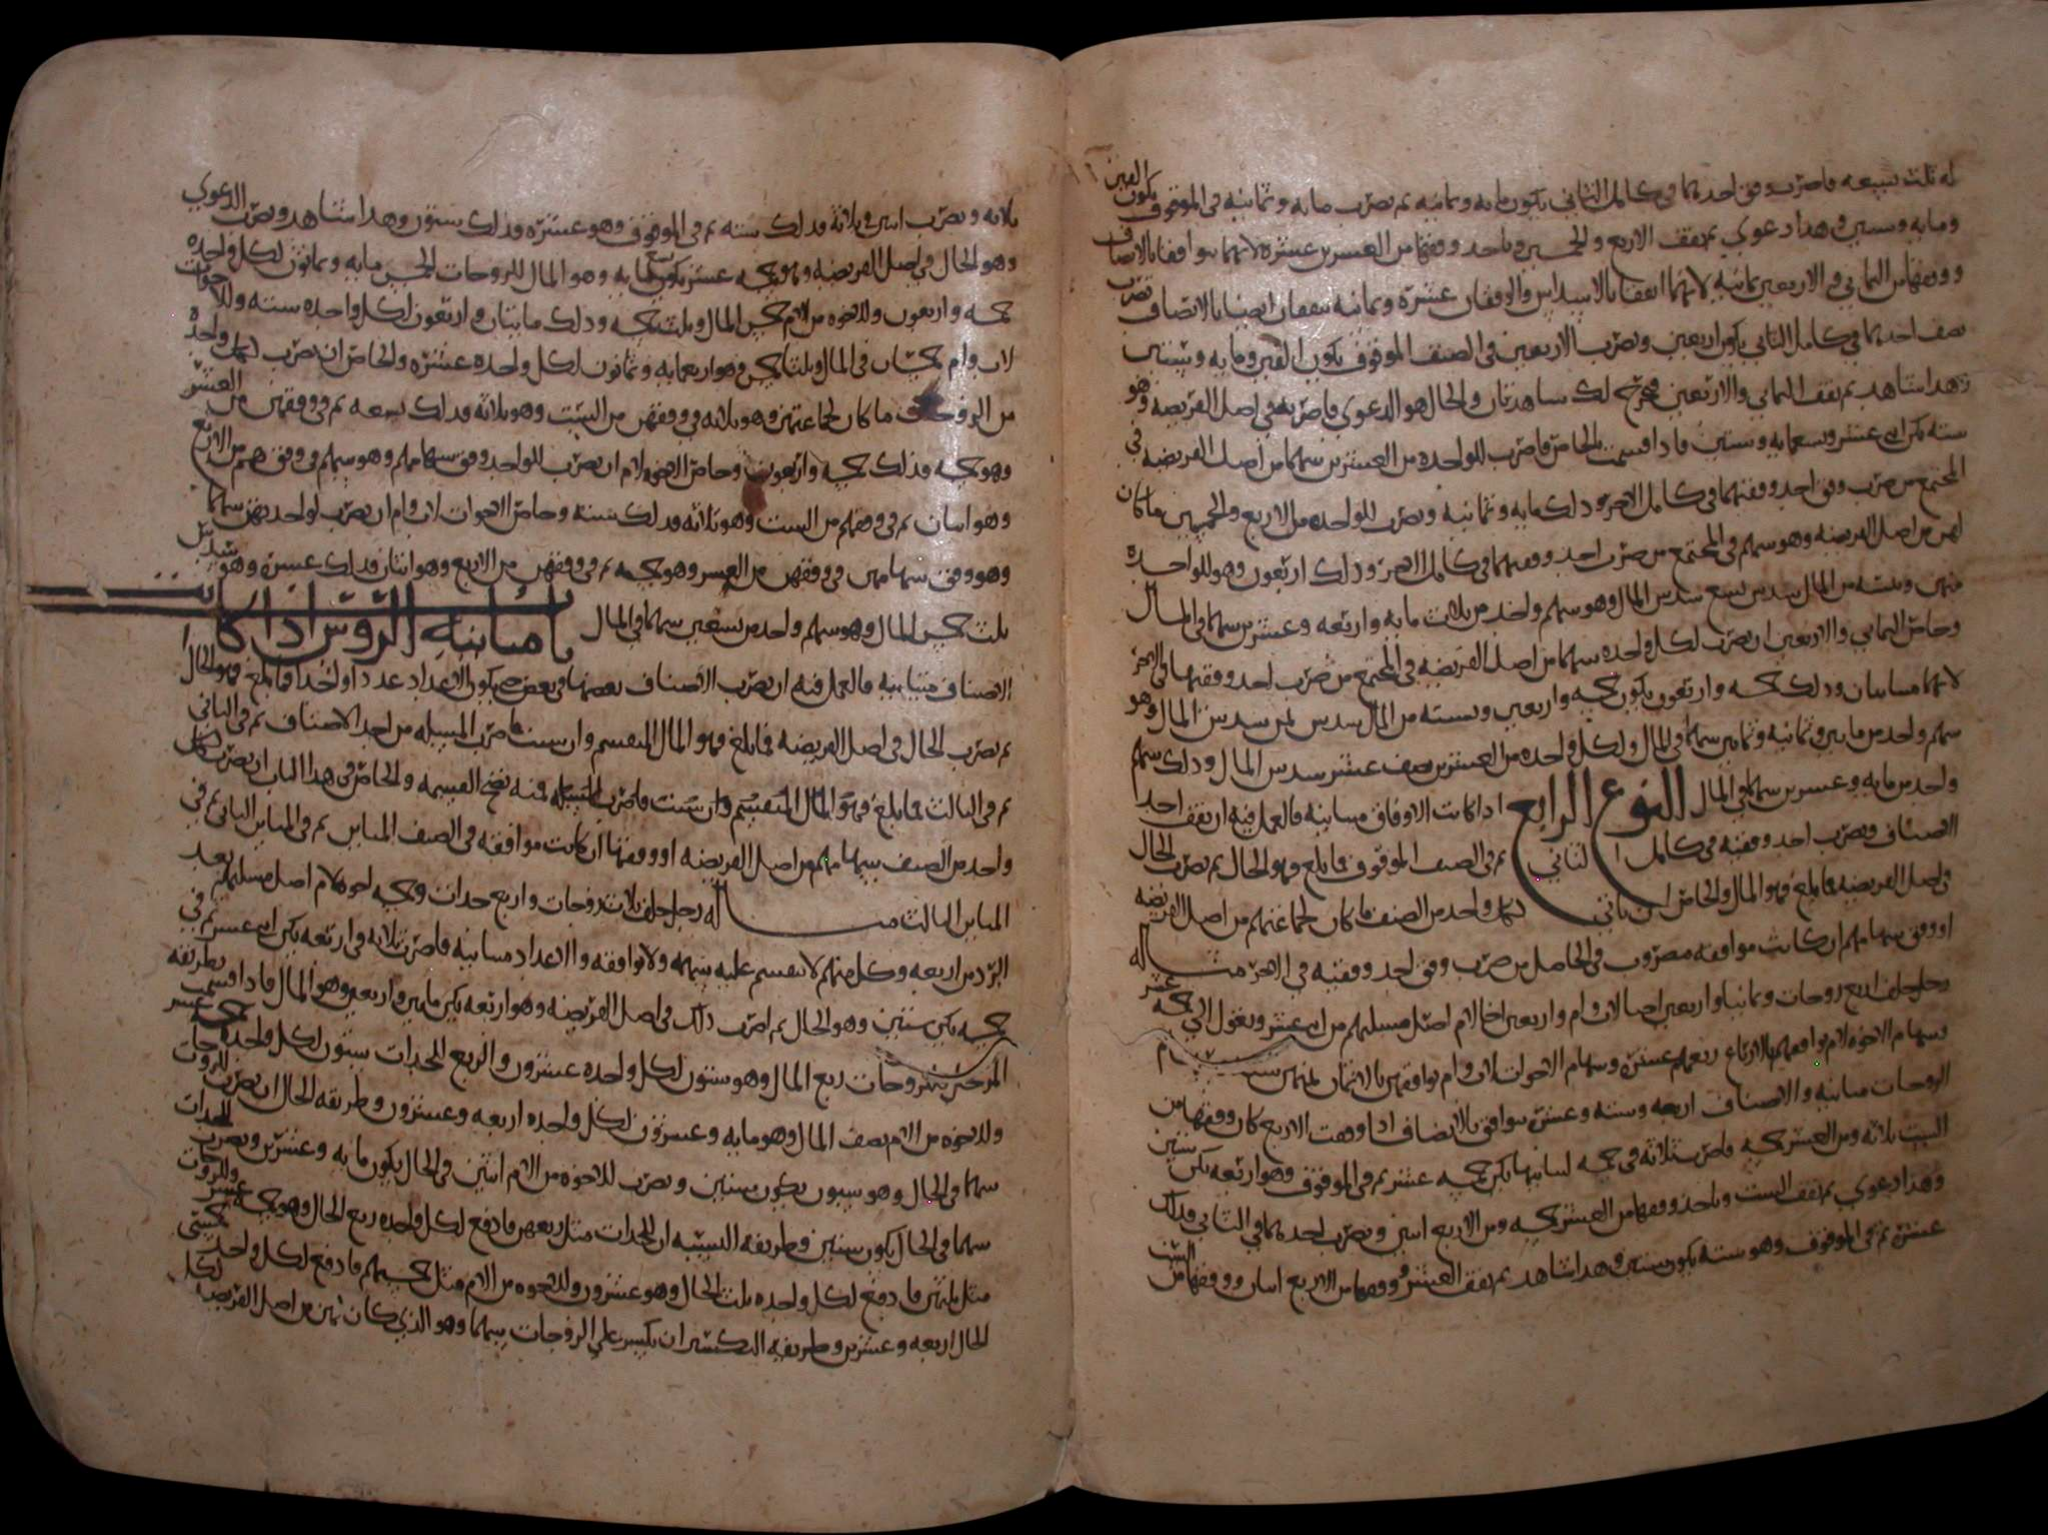 له ثلث سبعه فاضرب وفق احدهما في كامل الثاني يكون مايه وثمانيه ثم تضرب مايه وثمانيه في الموقوف يكون الفين
ومايه وستين وهذا دعوي ثم تقف الاربع والخمسين وتاخذ وفقها من العشرين عشره لانهما توافقا بالانصاف
ووفقها من الثماني والاربعين ثمانيه لانهما اتفقا بالاسداس والوفقان عشرة وثمانيه يتفقان ايضا بالانصاف تضرب
نصف احدهما في كامل الثاني يكون اربعين وتضرب الاربعين في الصنف الموقوف يكون الفين ومايه وستين
وهذا شاهد ثم تقف الثماني والاربعين فيخرج لك شاهد ثان والحال هو الدعوي فاضربه في اصل الفريضه وهو
سته يكن اثني عشر وتسعمايه وستين فاذا قسمت فالخاص فاضرب للواحده من العشرين سهما من اصل الفريضه في
المجتمع من ضرب وفق احد وفقيهما في كامل الاخر وذلك مايه وثمانيه وتضرب للواحده من الاربع والخمسين ما كان
لهن من اصل الفريضه وهو سهم في المجتمع من ضرب احد وفقيهما في كامل الاخر وذلك اربعون وهو للواحده
منهن ونسبته من المال سدس تسع سدس المال وهو سهم واحد من ثلاث مايه واربعه وعشرين سهما في المال
وخاص الثماني والاربعين ان تضرب لكل واحده سهما من اصل الفريضه في المجتمع من ضرب احد وفقيها في الاخر
لانهما متباينان وذلك خمسه واربعون يكون خمسه واربعين ونسبته من المال سدس ثمن سدس المال وهو
سهم واحد من مايتين وثمانيه وثمانين سهما في المال ولكل واحده من العشرين نصف عشر سدس المال وذلك سهم
واحد من مايه وعشرين سهما في المال النوع الرابع اذا كانت الاوفاق متباينه فالعمل فيه ان تقف احد
الاصناف وتضرب احد وفقيه في كامل الثاني ثم في الصنف الموقوف فما بلغ فهو الحال ثم تضرب الحال
في اصل الفريضه فما بلغ فهو المال والخاص ان تاتي لكل واحد من الصنف ما كان لجماعتهم من اصل الفريضه
او وفق سهامهم ان كانت موافقه مضروب في الحاصل من ضرب وفق احد وفقيه في الاخر مثاله
رجل خلف اربع زوجات وثمانيا واربعين اختا لاب وام واربعين اخا لام اصل مسلتهم من اثني عشر وتعول الي خمسه عشر
وسهام الاخوه لام توافقهم بالارباع ربعهم عشرة وسهام الاخوات لاب وام توافقهن بالاثمان ثمنهن سته وسهام
الزوجات متباينه والاصناف اربعه وسته وعشرة توافق بالانصاف اذا وقفت الاربع كان وفقها من
الست ثلاثه ومن العشر خمسه فاضرب ثلاثه في خمسه لتباينها يكن خمسه عشر ثم في الموقوف وهو اربعه يكن ستين
وهذا دعوي ثم تقف الست وتاخذ وفقها من العشر خمسه ومن الاربع اثنين وتضرب احدهما في الثاني فذلك
عشرة ثم في الموقوف وهو سته يكون ستين وهذا شاهد ثم تقف العشر ووفقها من الاربع اثنان ووفقها من الست
ثلاثه وتضرب اثنين في ثلاثة فذلك سته ثم في الموقوف وهو عشره وذلك ستون وهذا شاهد وتضرب الدعوي
وهو الحال في اصل الفريضه وهو خمسه عشر يكون تسع مايه وهو المال للزوجات الخمس مايه وثمانون لكل واحده
خمسه واربعون وللاخوه من الام خمس المال وثلث خمسه وذلك مايتان واربعون لكل واحده سته وللاخوات
لاب وام خمسان في المال وثلثا خمس وهو اربعمايه وثمانون لكل واحده عشره والخاص ان تضرب لكل واحدة
من الزوجات ما كان لجماعتهن وهو ثلاثه في وفقهن من الست وهو ثلاثه فذلك تسعه ثم في وفقهن من العشر
وهو خمسه فذلك خمسه واربعون وخاص الاخوه لام ان تضرب للواحد وفق سهامهم وهو سهم في وفقهم من الاربع
وهو اثنان ثم في وفقهم من الست وهو ثلاثه فذلك سته وخاص الاخوات لاب وام ان تضرب لواحدتهن سهما
وهو وفق سهامهن في وفقهن من العشر وهو خمسه ثم في وفقهن من الاربع وهو اثنان فذلك عشرة وهو سدس
ثلث خمس المال وهو سهم واحد من تسعين سهما في المال باب مباينة الروس اذا كانت
الاصناف متباينه فالعمل فيه ان تضرب الاصناف بعضها في بعض حتى يكون الاعداد عددا واحدا فما بلغ فهو الحال
ثم تضرب الحال في اصل الفريضه فما بلغ فهو المال المنقسم وان شيت فاضرب المسله من احد الاصناف ثم في الثاني
ثم في الثالث فما بلغ فهو المال المنقسم وان شيت فاضرب المسله فمنه تصح القسمه والخاص في هذا الباب ان تضرب لكل
واحد من الصنف سهامهم من اصل الفريضه او وفقها ان كانت موافقه في الصنف المباين ثم في المباين الثاني ثم في
المباين الثالث مثاله رجل خلف ثلاث زوجات واربع جدات وخمسه اخوه لام اصل مسلتهم بعد
الرد من اربعه وكل منهم لا ينقسم عليه سهمه ولا توافقه والاعداد متباينه فاضرب ثلاثه في اربعه يكن اثني عشر ثم في
خمسه يكن ستين وهو الحال ثم اضرب ذلك في اصل الفريضه وهو اربعه يكن مايتين واربعين وهو المال فاذا قسمت بطريقه
للزوجات ربع المال وهو ستون لكل واحده عشرون والربع للجدات ستون لكل واحدة خمس عشر
وللاخوه من الام نصف المال وهو مايه وعشرون لكل واحده اربعه وعشرون وطريقه الحال ان تضرب للزوجات
سهما في الحال وهو ستون يكون ستين وتضرب للاخوه من الام اثنين في الحال يكون مايه وعشرين وتضرب للجدات
سهما في الحال يكون ستين وطريقه النسبه ان للجدات مثل ربعهن فادفع لكل واحده ربع الحال وهو خمسه عشر وللزوجات
مثل ثلثهن فادفع لكل واحده ثلث الحال وهو عشرون وللاخوه من الام مثل خمسيهم فادفع لكل واحد خمسي
الحال اربعه وعشرين وطريقه التكسير ان تكسر علي الزوجات سهما وهو الذي كان لهن من اصل الفريضه لكل